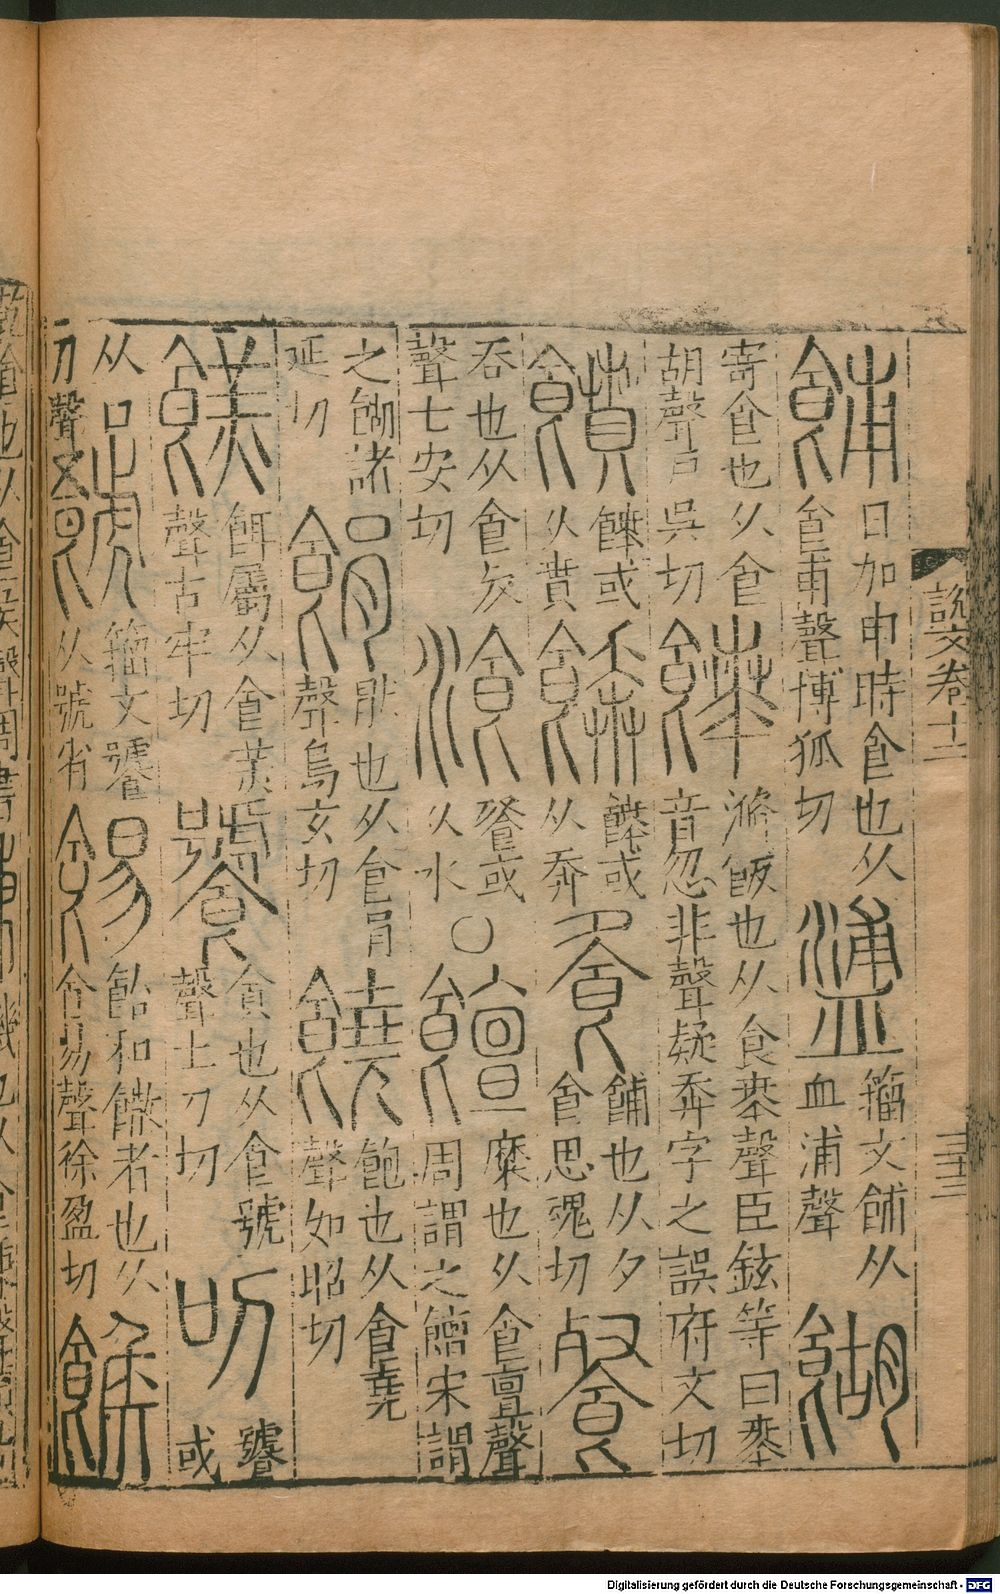 餔日加申時食也从食甫聲博狐切𥂋籀文餔从皿浦聲餬
寄食也从食胡聲戸吳切𩞾滫飯也从食𠦪聲臣鉉等曰𠦪音忽非聲疑奔字之誤府文切
饙𩞾或从賁餴𩞾或从奔飧餔也从夕食思魂切餐
吞也从食𣦼聲七安切湌餐或从水○饘糜也从食亶聲周謂之饘宋謂
之餬諸延切䬼猒也从食肙聲烏玄切饒飽也从食堯聲如昭切
餻餌屬从食羔聲古牢切饕貪也从食號聲土刀切叨饕或
从口刀聲𩛹籀文饕从號省餳飴和饊者也从食昜聲徐盈切餘
說文卷十一
三十三
Digitalisierung gefördert durch die Deutsche Forschungsgemeinschaft - DFG